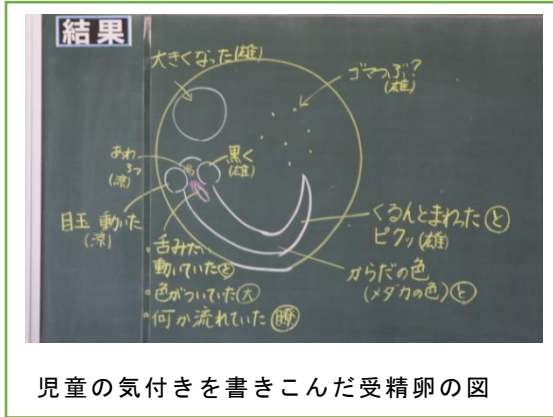 結果
大きくなった(雄)
ゴマつぶ?
(雄)
あわ
3つ
(涼)
黒く
(雄)
目玉 動いた
(涼)
くるんとまわった と
ピクッ(雄)
からだの色
(メダカの色) と
・舌みたい
動いていた と
・色がついていた 大
・何か流れていた 瞭
児童の気付きを書きこんだ受精卵の図